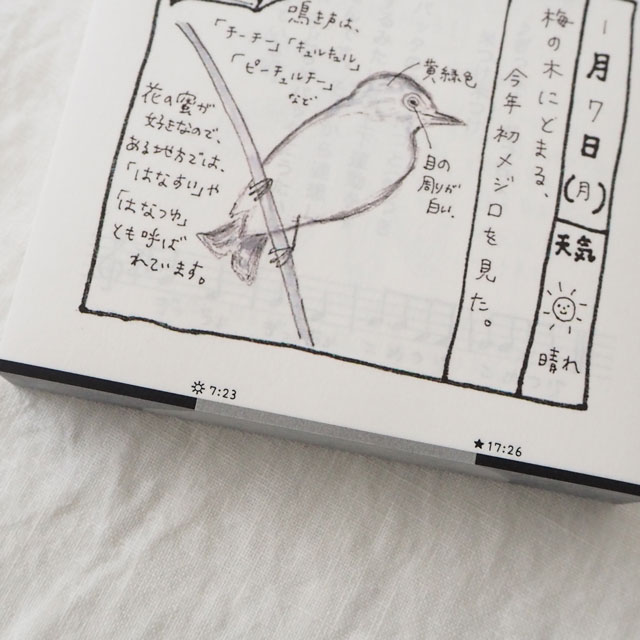 1月7日(月)
天気
晴れ
梅の木にとまる、
今年初メジロを見た。
黄緑色
目の
周りが
白い。
鳴き声は、
「チーチー」「キュルキュル」
「ピーチュルチー」
など
花の蜜が
好きなので、
ある地方では、
「はなすい」や
「はなつゆ」
とも呼ば
れています。
7:23
17:26